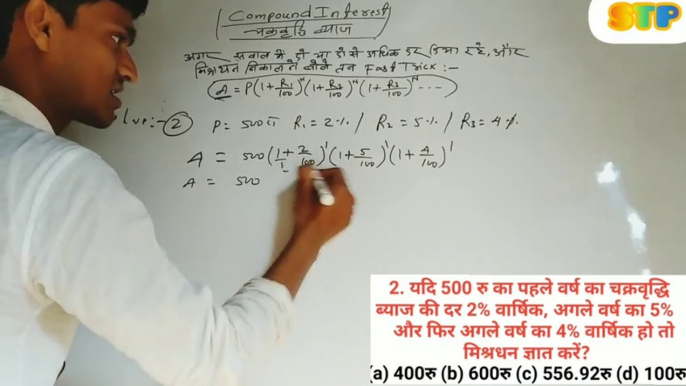 Compound Interest
चक्रवृद्धि ब्याज
STP
अगर सवाल में दो या दो से अधिक दर दिया रहे, और
मिश्रधन निकालने बोले तब Fast Trick :-
A = P(1+R1/100)^N (1+R2/100)^N (1+R3/100)^N ...
lve:- 2 P = 500रु R1 = 2% / R2 = 5% / R3 = 4%
A = 500 (1/1+2/100)^1 (1+5/100)^1 (1+4/100)^1
A = 500
2. यदि 500 रु का पहले वर्ष का चक्रवृद्धि
ब्याज की दर 2% वार्षिक, अगले वर्ष का 5%
और फिर अगले वर्ष का 4% वार्षिक हो तो
मिश्रधन ज्ञात करें?
(a) 400रु (b) 600रु (c) 556.92रु (d) 100रु